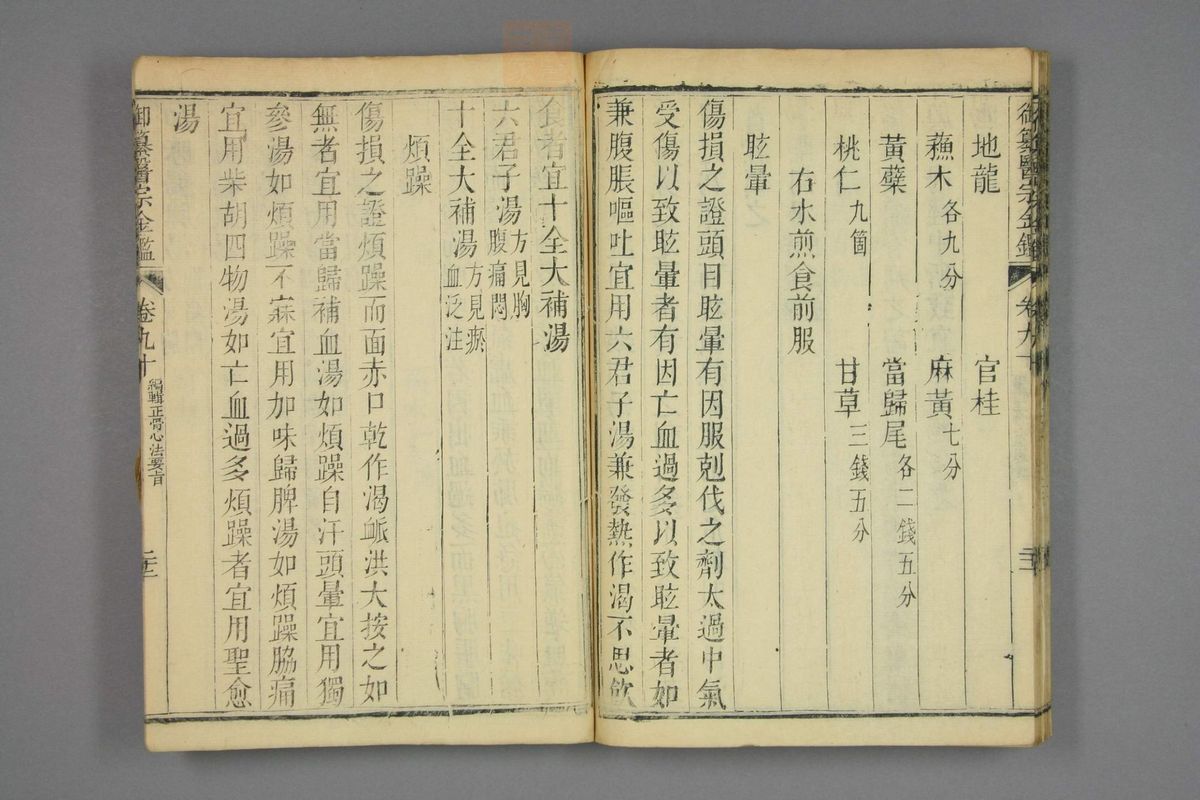 御纂醫宗金鑑 卷九十
地龍 官桂
蘓木各九分 麻黃七分
黃蘗 當歸尾各二錢五分
桃仁九箇 甘草三錢五分
右水煎食前服
眩暈
傷損之證頭目眩暈有因服剋伐之劑太過中氣
受傷以致眩暈者有因亡血過多以致眩暈者如
兼腹脹嘔吐宜用六君子湯兼發熱作渴不思飲
食者宜十全大補湯
六君子湯方見胸腹痛悶
十全大補湯方見瘀血泛注
煩躁
傷損之證煩躁而面赤口乾作渴脈洪大按之如
無者宜用當歸補血湯如煩躁自汗頭暈宜用獨
參湯如煩躁不寐宜用加味歸脾湯如煩躁脇痛
宜用柴胡四物湯如亡血過多煩躁者宜用聖愈
湯
御纂醫宗金鑑 卷九十 編輯正骨心法要旨